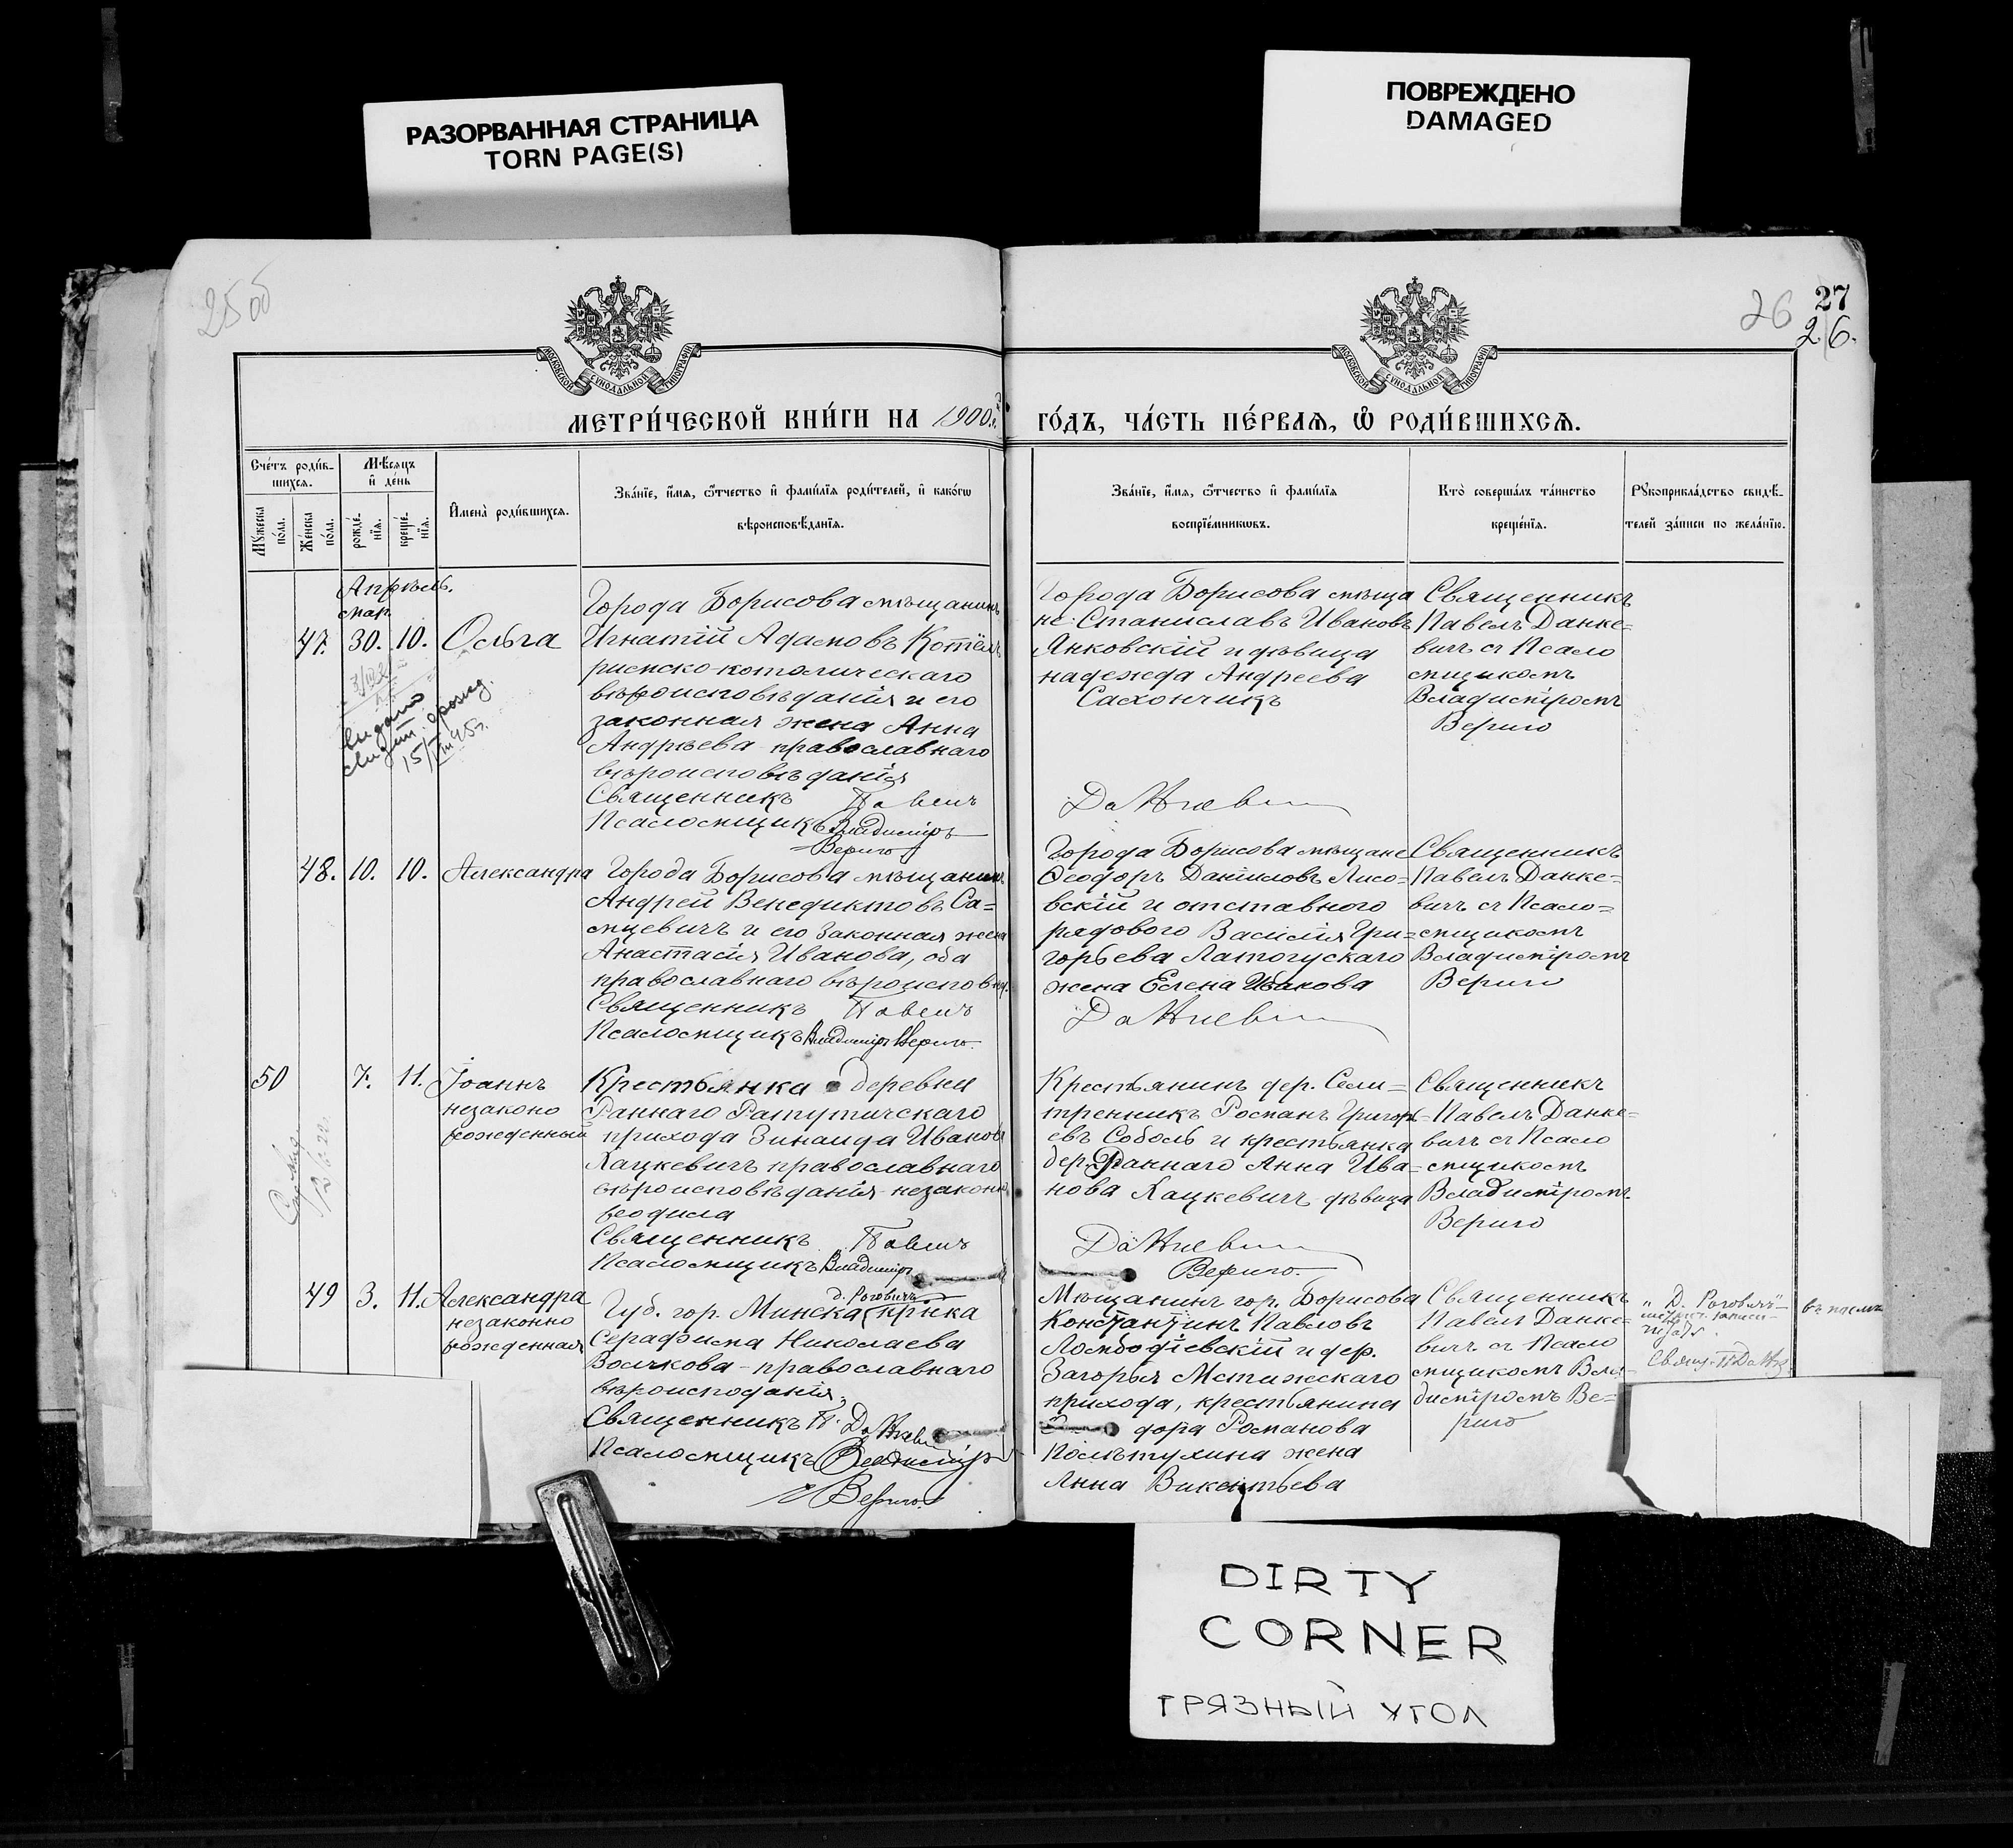 РАЗОРВАННАЯ СТРАНИЦА
TORN PAGE(S)
ПОВРЕЖДЕНО
DAMAGED
25 об
26
27
26.
МОСКОВСКОЙ СѴНОДАЛЬНОЙ ТИПОГРАФІИ
МОСКОВСКОЙ СѴНОДАЛЬНОЙ ТИПОГРАФІИ
МЕТРИ́ЧЕСКОЙ КНИ́ГИ НА 1900 г.
ГО́ДЪ, ЧА́СТЬ ПЕ́РВАѦ, Ѽ РОДИ́ВШИХСѦ.
Сче́тъ роди́в-
шихся.
Мѣсяцъ
и де́нь
Мꙋжеска
по́ла.
Же́нска
по́ла.
рожде́-
нїя.
креще́-
нїя.
И́мена̀ роди́вшихся.
Зва́нїе, и́мя, ѻ҆́тчество и҆ фами́лїя роди́телей, и҆ како́гѡ
вѣроисповѣ́данїя.
Зва́нїе, и́мя, ѻ҆́тчество и҆ фами́лїя
воспрїе́мникѡвъ.
Кто̀ соверша́лъ та́инство
креще́нїя.
Рꙋкоприкла́дство свидѣ́-
телей за́писи по жела́нїю.
Апрѣль.
мар.
47. 30. 10. Ольга
выдано
свидет. о рожд.
15/VIII 45 г.
Города Борисова мѣщанинъ
Игнатій Адамовъ Котёлъ
римско-католическаго
вѣроисповѣданія и его
законная жена Анна
Андреева православнаго
вѣроисповѣданія
Священникъ Павелъ
Псаломщикъ Владиміръ
Вериго
Города Борисова мѣща
не: Станиславъ Ивановъ
Янковскій и дѣвица
надежда Андреева
Сахончикъ
Данкевич
Священникъ
Павелъ Данке=
вичъ съ Псало
мщикомъ
Владиміромъ
Вериго
48. 10. 10. Александра
Города Борисова мѣщанинъ
Андрей Венедиктовъ Са=
мцевичъ и его законная жена
Анастасія Иванова, оба
православнаго вѣроисповѣд.
Священникъ Павелъ
Псаломщикъ Владиміръ Вериго.
Города Борисова мѣщане
Ѳеодоръ Даниловъ Лисо=
вскій и отставного
рядового Василія Гри=
горьева Латогускаго
жена Елена Ивакова
Данкевич
Священникъ
Павелъ Данке=
вичъ съ Псало=
мщикомъ
Владиміромъ
Вериго
50 7. 11. Іоаннъ
незаконо
рожденный
Крестьянка деревни
Раннаго Ратутичскаго
прихода Зинаида Иванов
Кацкевичъ православнаго
вѣроисповѣданія незаконно
родила
Священникъ Павелъ
Псаломщикъ Владиміръ
Крестьянинъ дер. Сели=
тренникъ Романъ Григорь=
евъ Соболь и крестьянка
дер. Раннаго Анна Ива=
нова Кацкевичъ дѣвица
Данкевич
Вериго.
Священникъ
Павелъ Данке=
вичъ съ Псало
мщикомъ
Владиміромъ
Вериго
49 3. 11. Александра
незаконно
рожденная
д. Роговичъ
Губ. гор. Минска крѣка
Серафима Николаева
Волчкова - православнаго
вѣроисподанія;
Священникъ П. Данкевич
Псаломщикъ Владиміръ
Вериго.
Мѣщанинъ гор. Борисова
Константинъ Павловъ
Ломбодіевскій и дер.
Загорья Мстижскаго
прихода, крестьянина
дора Романова
Полѣтухина жена
Анна Викентьева
Священникъ
Павелъ Данке=
вичъ съ Псало
мщикомъ Вла=
диміромъ Ве=
риго
„Д. Роговичъ“
Свящ. П Данк.
DIRTY
CORNER
ГРЯЗНЫЙ УГОЛ